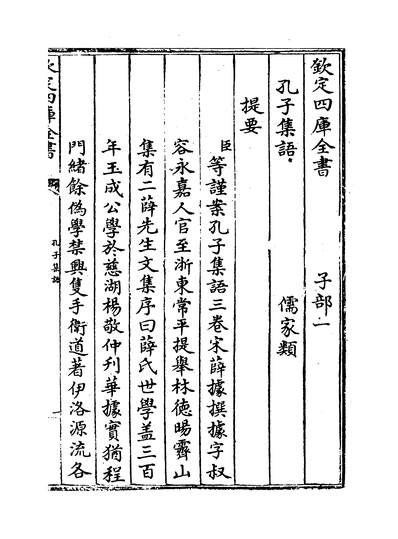 欽定四庫全書
子部一
孔子集語
儒家類
提要
臣等謹案孔子集語三卷宋薛據撰據字叔
容永嘉人官至浙東常平提舉林德暘霽山
集有二薛先生文集序曰薛氏世學盖三百
年玉成公學於慈湖楊敬仲刋華據實猶程
門緒餘偽學禁興隻手衛道著伊洛源流各
欽定四庫全書
孔子集語